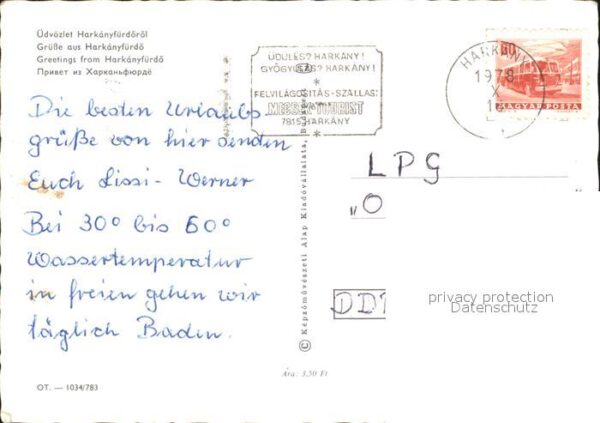 Üdvözlet Harkányfürdőről
Grüße aus Harkányfürdő
Greetings from Harkányfürdő
Привет из Харканьфюрдё
ÜDÜLÉS? HARKÁNY!
GYÓGYULÁS? HARKÁNY!
FELVILÁGOSÍTÁS-SZÁLLÁS:
7815 HARKÁNY
HARKÁNY
1978
X
60
MAGYAR POSTA
Die besten Urlaubs
grüße von hier senden
Euch Lissi- Werner
Bei 30° bis 60°
Wassertemperatur
in freien gehen wir
täglich Baden.
LPG
"O
privacy protection
Datenschutz
© Képzőművészeti Alap Kiadóvállalata, Budapest
Ára: 3,50 Ft
OT. — 1034/783